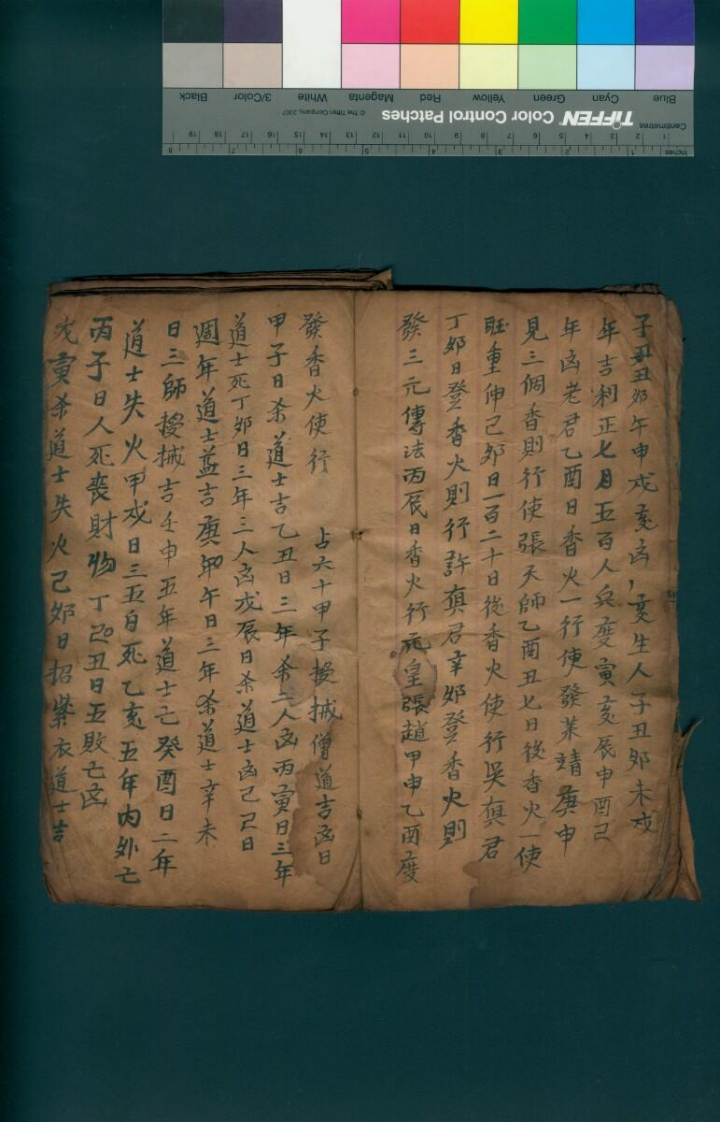 子丑丑卯午申戌亥凶亥生人子丑卯未戌
年吉利正七月五百人兵度寅亥辰申酉己
年凶老君乙酉日香火一行使發葉靖庚申
見三個香則行使張天師乙酉丑七日後香火一使
旺重伸己卯日一百二十日後香火使行吳真君
丁卯日登香火則行許真君辛卯登香火則
發三元傳法丙辰日香火行元皇張趙甲申乙酉度
發香火使行 占六十甲子授械僧道吉凶日
甲子日杀道士吉乙丑日三年杀二人凶丙寅日三年
道士死丁卯日三年三人凶戊辰日杀道士凶己巳日
週年道士益吉庚午日三年杀道士辛未
日三師授械吉壬申五年道士亡癸酉日二年
道士失火甲戌日三五自死乙亥五年内外亡
丙子日人死丧財物丁丑日五敗亡凶
戊寅杀道士失火己卯日招紫衣道士吉
Blue Cyan Green Yellow Red Magenta White 3/Color Black
TIFFEN Color Control Patches
© The Tiffen Company, 2007
Centimetres
Inches